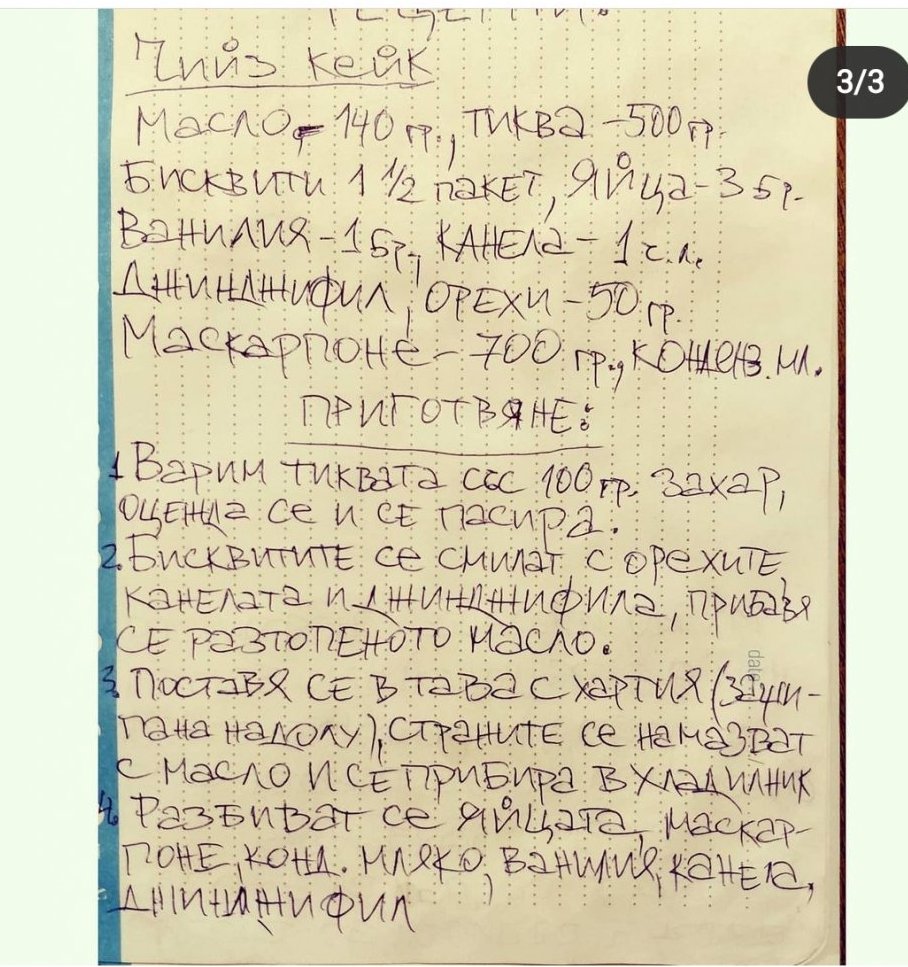 Рецепти:
3/3
Чийз кейк
Масло - 140 гр., тиква - 500 гр.
Бисквити 1 1/2 пакет, яйца - 3 бр.
Ванилия - 1 бр., канела - 1 с.л.
Джинджифил, орехи - 50 гр.
Маскарпоне - 700 гр., конденз. мл.
Приготвяне:
1. Варим тиквата със 100 гр. захар,
оцежда се и се пасира.
2. Бисквитите се смилат с орехите,
канелата и джинджифила, прибавя
се разтопеното масло.
date
3. Поставя се в тава с хартия (защи-
пана надолу), страните се намазват
с масло и се прибира в хладилник
4. Разбиват се яйцата, маскар-
поне, конд. мляко, ванилия, канела,
джинджифил